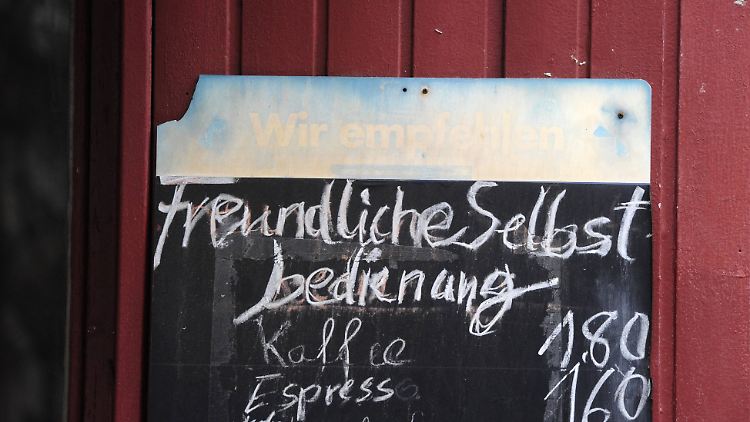 Wir empfehlen
freundliche Selbst
bedienung
Kaffee 1.80
Espresso 160